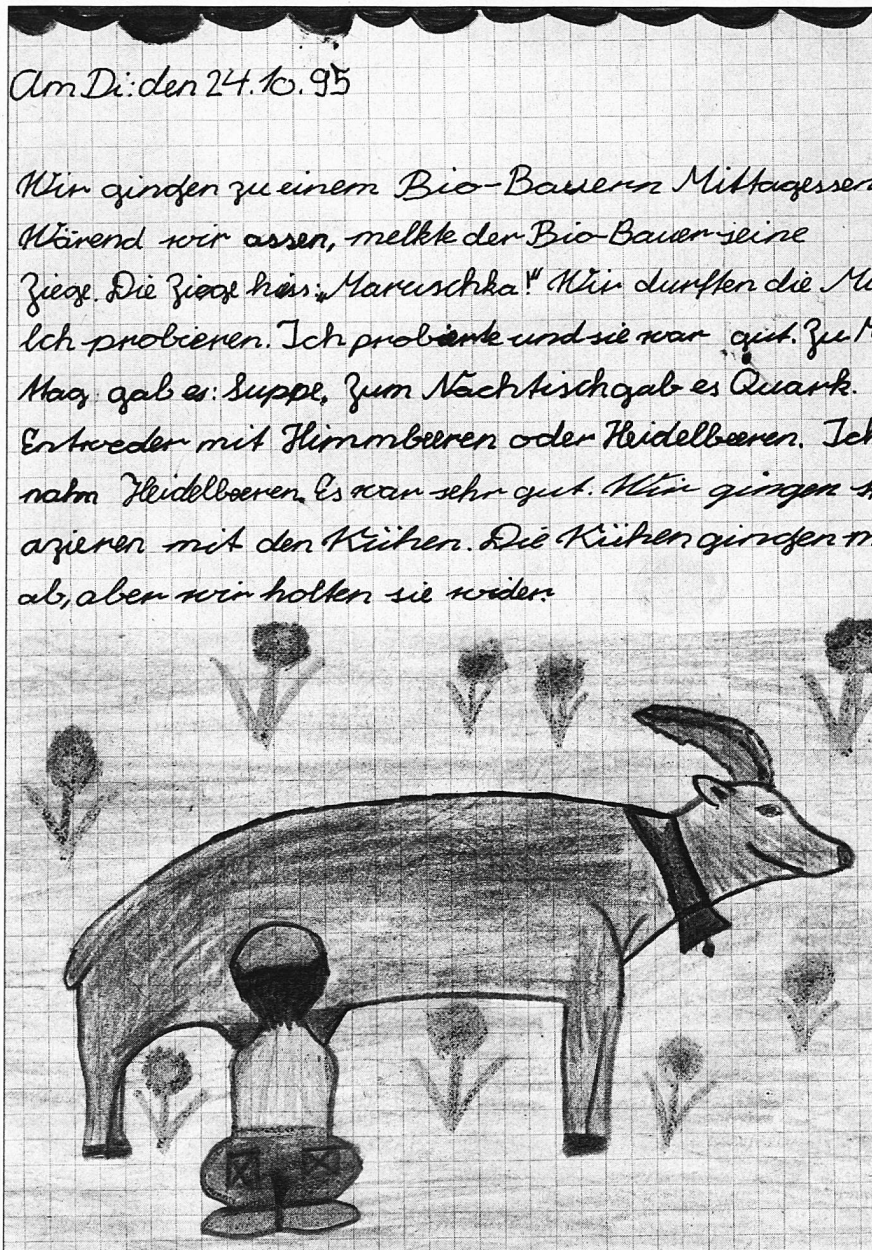 Am Di: den 24.10.95
Wir gingen zu einem Bio-Bauern Mittagessen
Wärend wir assen, melkte der Bio-Bauer seine
Ziege. Die Ziege hiess: „Maruschka!" Wir durften die Mi
lch probieren. Ich probierte und sie war gut. Zu M
ttag gab es: Suppe. Zum Nachtisch gab es Quark.
Entweder mit Himmbeeren oder Heidelbeeren. Ich
nahm Heidelbeeren. Es war sehr gut. Wir gingen s
azieren mit den Kühen. Die Kühen gingen m
ab, aber wir holten sie wider.